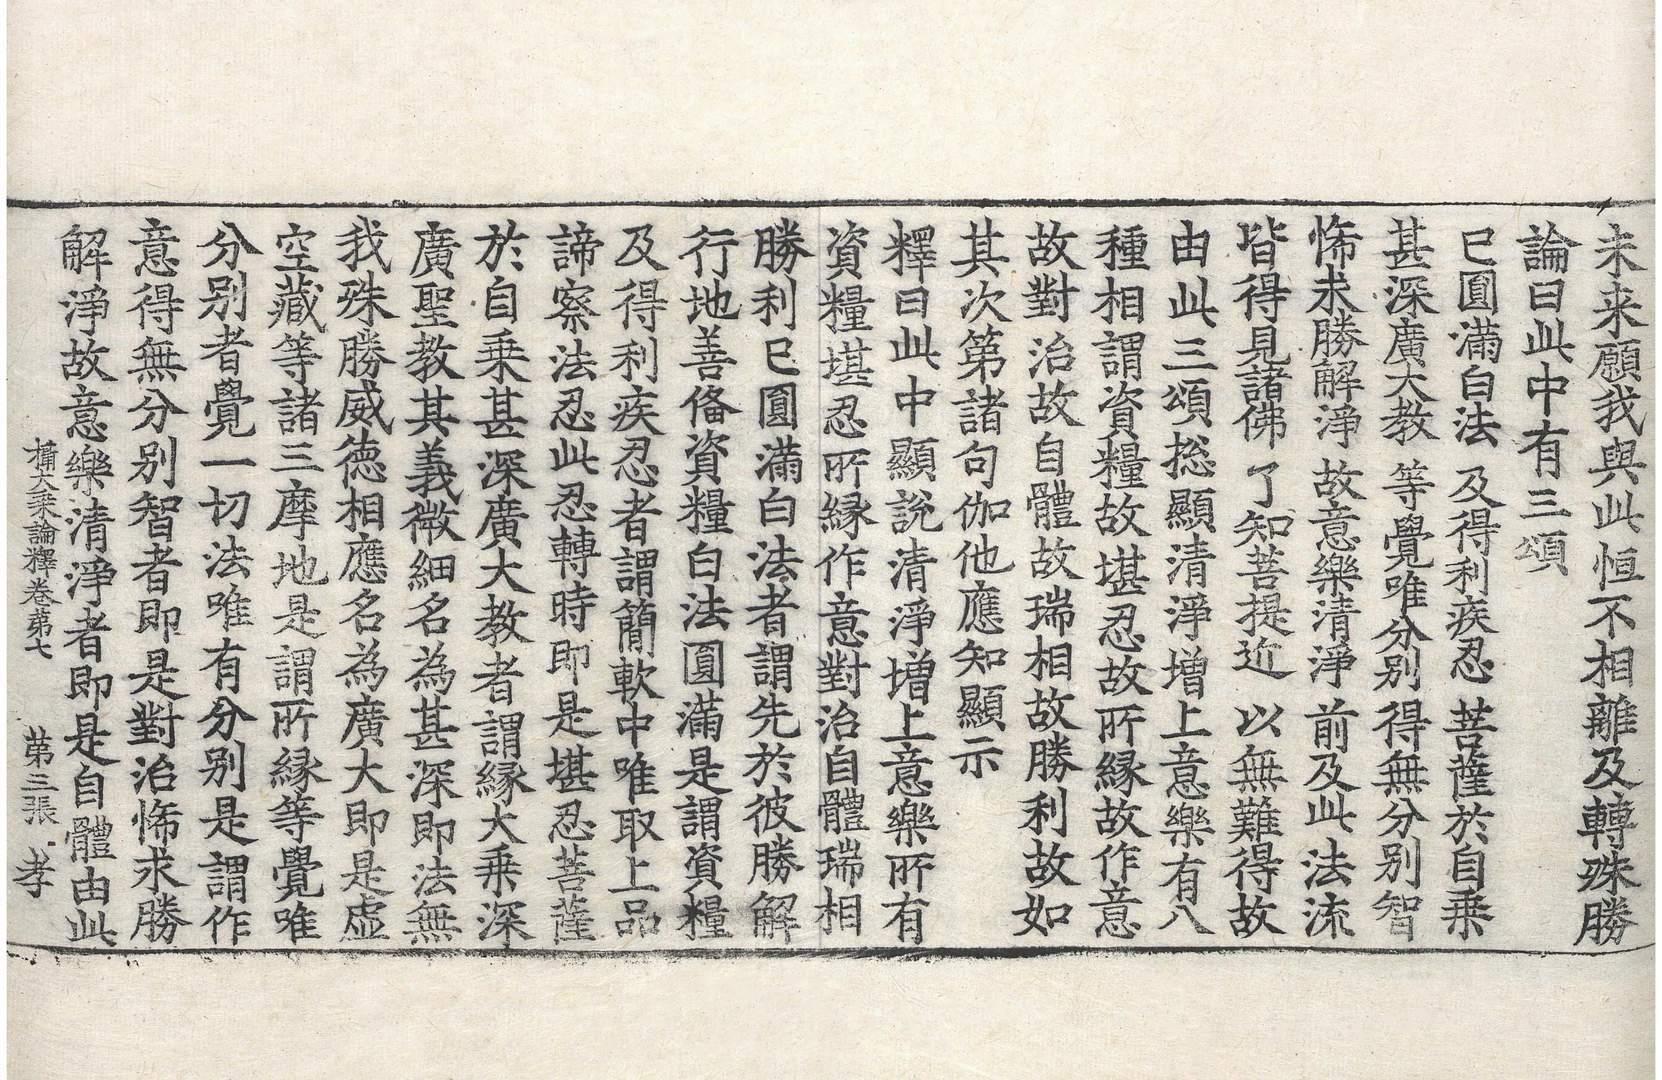 未来願我與此恒不相離及轉殊勝
論曰此中有三頌
已圓滿白法 及得利疾忍 菩薩於自乗
甚深廣大教 等覺唯分别 得無分别智
悕求勝解淨 故意樂清淨 前及此法流
皆得見諸佛 了知菩提近 以無難得故
由此三頌捴顯清淨增上意樂有八
種相謂資糧故堪忍故所縁故作意
故對治故自體故瑞相故勝利故如
其次第諸句伽他應知顯示
釋曰此中顯說清淨增上意樂所有
資糧堪忍所縁作意對治自體瑞相
勝利已圓滿白法者謂先於彼勝解
行地善俻資糧白法圓滿是謂資糧
及得利疾忍者謂簡軟中唯取上品
諦察法忍此忍轉時即是堪忍菩薩
於自乗甚深廣大教者謂縁大乗深
廣聖教其義微細名為甚深即法無
我殊勝威德相應名為廣大即是虛
空藏等諸三摩地是謂所縁等覺唯
分别者覺一切法唯有分别是謂作
意得無分别智者即是對治悕求勝
解淨故意樂清淨者即是自體由此
攝大乗論釋卷第七 第三張 孝